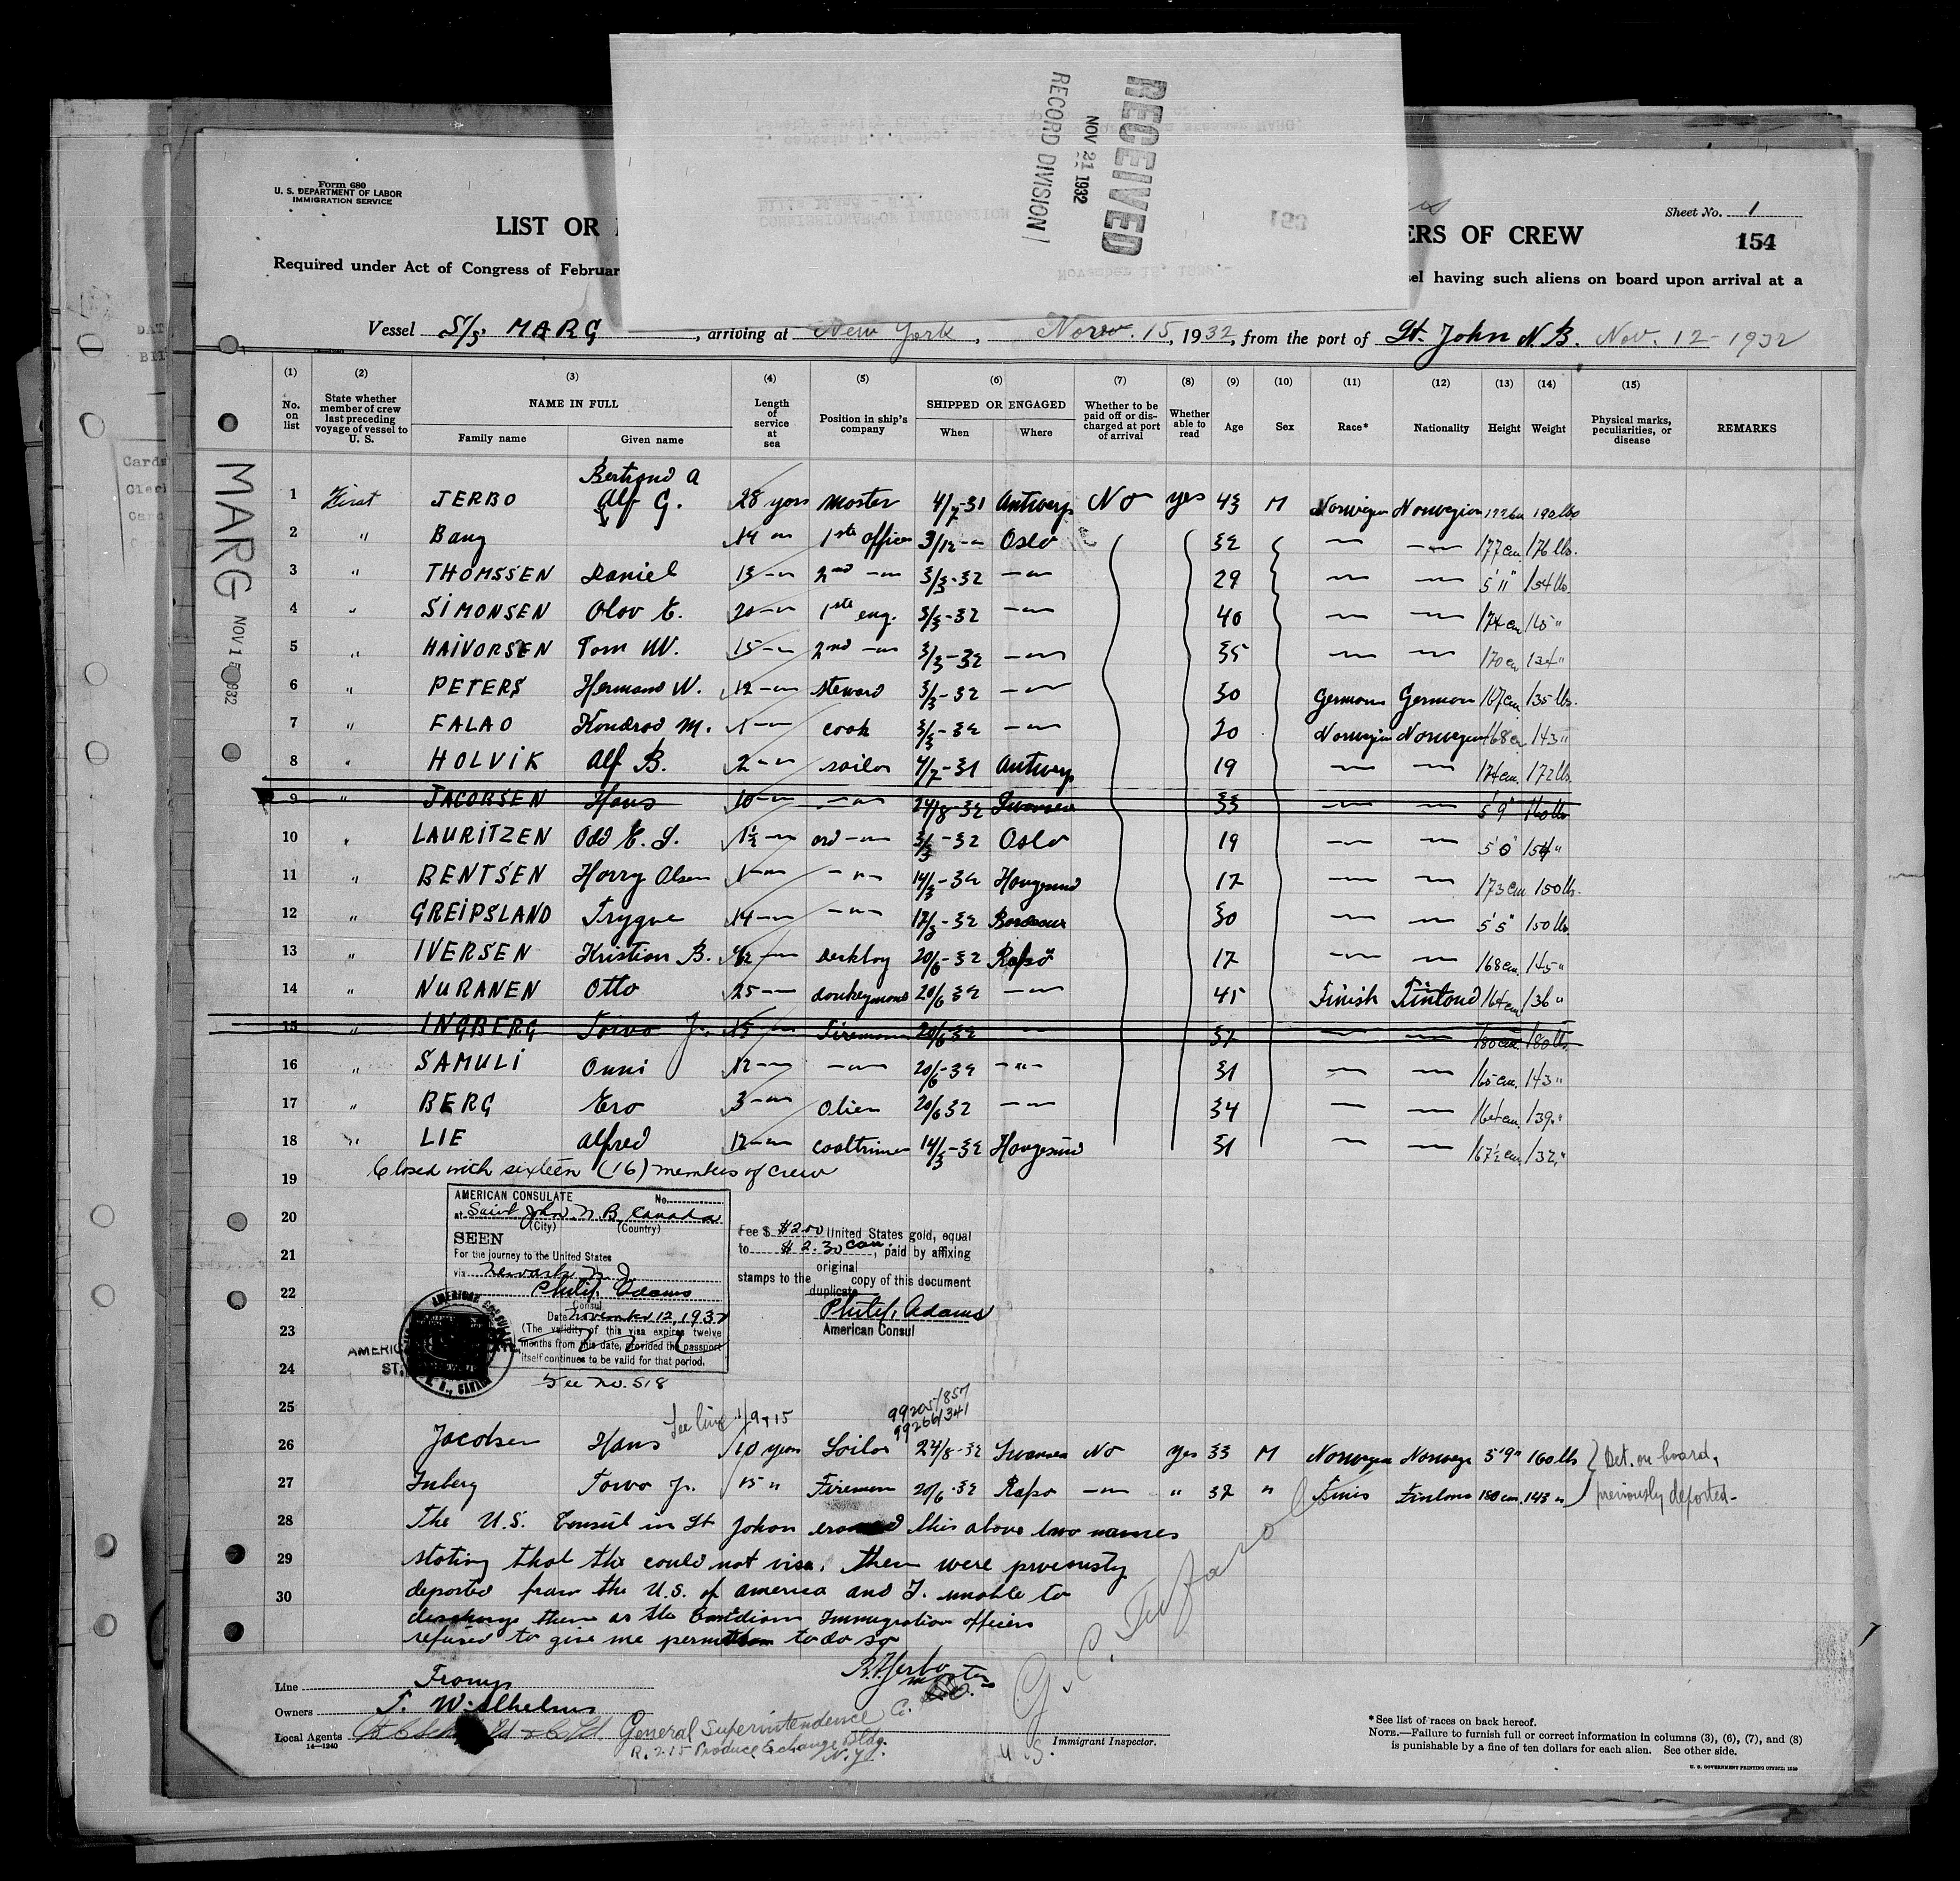 RECEIVED
NOV 21 1932
RECORD DIVISION
Form 680
U. S. DEPARTMENT OF LABOR
IMMIGRATION SERVICE
Sheet No. 1
154
LIST OR
ERS OF CREW
Required under Act of Congress of Februar
sel having such aliens on board upon arrival at a
Vessel S/s MARG, arriving at New York, Nov. 15, 1932, from the port of St. John N.B. Nov. 12-1932
(1) (2) (3) (4) (5) (6) (7) (8) (9) (10) (11) (12) (13) (14) (15)
No. on list
State whether member of crew last preceding voyage of vessel to U. S.
NAME IN FULL
Family name
Given name
Length of service at sea
Position in ship's company
SHIPPED OR ENGAGED
When
Where
Whether to be paid off or discharged at port of arrival
Whether able to read
Age
Sex
Race*
Nationality
Height
Weight
Physical marks, peculiarities, or disease
REMARKS
MARG NOV 15 1932
Bertrand A
1 First JERBO Alf G. 28 years Master 4/7-31 Antwerp No yes 43 M Norwegian Norwegian
2 " Bang 14 -"- 1ste officer 3/12 -"- Oslo 32 -"- -"- 177 cm 176 lbs.
3 " THOMSSEN Daniel 13 -"- 2nd -"- 3/3-32 -"- 29 -"- -"- 5'11" 154 lb.
4 " SIMONSEN Olov E. 20 -"- 1ste eng. 3/3-32 -"- 40 -"- -"- 174 cm
5 " HAIVORSEN Tom W. 15 -"- 2nd -"- 3/3-32 -"- 35 -"- -"- 170 cm
6 " PETERS Hermand W. 12 -"- steward 3/3-32 -"- 30 German German 167 cm 135 lbs.
7 " FALAO Kondrad M. 1 -"- cook 3/3-32 -"- 20 Norwegian Norwegian 168 cm 143 "
8 " HOLVIK Alf B. 2 -"- sailor 4/7-31 Antwerp 19 -"- -"- 174 cm. 172 lb.
9 " JACOBSEN Hans 10 -"- -"- 24/8-32 Swansea 33 -"- -"- 5'9" 160 lb
10 " LAURITZEN Odd E. 1½ -"- ord -"- 3/3-32 Oslo 19 -"- -"- 154 "
11 " BENTSEN Harry Olsen 1 -"- -"- 14/3-32 Haugesund 17 -"- -"- 173 cm 150 lb.
12 " GREIPSLAND Trygve 14 -"- -"- 17/3-32 Bordeaux 30 -"- -"- 5'5" 150 lb.
13 " IVERSEN Kristian B. ½ -"- Deckboy 20/6-32 Rafsö 17 -"- -"- 168 cm. 145 "
14 " NURANEN Otto 25 -"- donkeymand 20/6 32 -"- 45 Finish Finland 164 cm. 136 "
15 " INGBERG Toivo J. 15 -"- Fireman 20/6 32 37 -"- -"- 180 cm. 180 lb.
16 " SAMULI Onni 12 -"- -"- 20/6-32 -"- 31 -"- -"- 165 cm. 143 "
17 " BERG Ero 3 -"- Olier 20/6 32 -"- 34 -"- -"- 164 cm. 139 "
18 " LIE Alfred 12 -"- coaltrimer 14/3-32 Haugesund 31 -"- -"- 167½ cm. 132 "
19 Closed with sixteen (16) members of crew
20
21
22
23
24
25
AMERICAN CONSULATE No.
at Saint John N.B. Canada
(City) (Country)
SEEN
For the journey to the United States
via Newark N.J.
Philip Adams
Consul
Date November 12, 1932
(The validity of this visa expires twelve
months from this date, provided the passport
itself continues to be valid for that period.
Fee No. 518
Fee $ $2.00 United States gold, equal
to $2.30 Can., paid by affixing
original
stamps to the copy of this document
duplicate
Philip Adams
American Consul
See line 9 + 15
26 Jacobsen Hans 10 years Sailor 24/8-32 Swansea No Yes 33 M Norwegian Norwege 5'9" 160 lbs Det. on board,
27 Inberg Toivo J. 15 " Firemen 20/6-32 Rafso -"- " 37 " Finis Finland 180 cm. 143 " previously deported-
28 The U.S. Consul in St Johon erased this above two names
29 stating that the could not visa, them were previously
30 deported from the U.S. of America and I. unable to
discharge them as the Canadian Immigration officers
refused to give me permition to do so
Line Tramp
Owners T. Wilhelms
Local Agents General Superintendence Co.
R. 215 Produce Exchange Bldg.
N.Y.
14-1240
Master
Immigrant Inspector.
*See list of races on back hereof.
NOTE.—Failure to furnish full or correct information in columns (3), (6), (7), and (8)
is punishable by a fine of ten dollars for each alien. See other side.